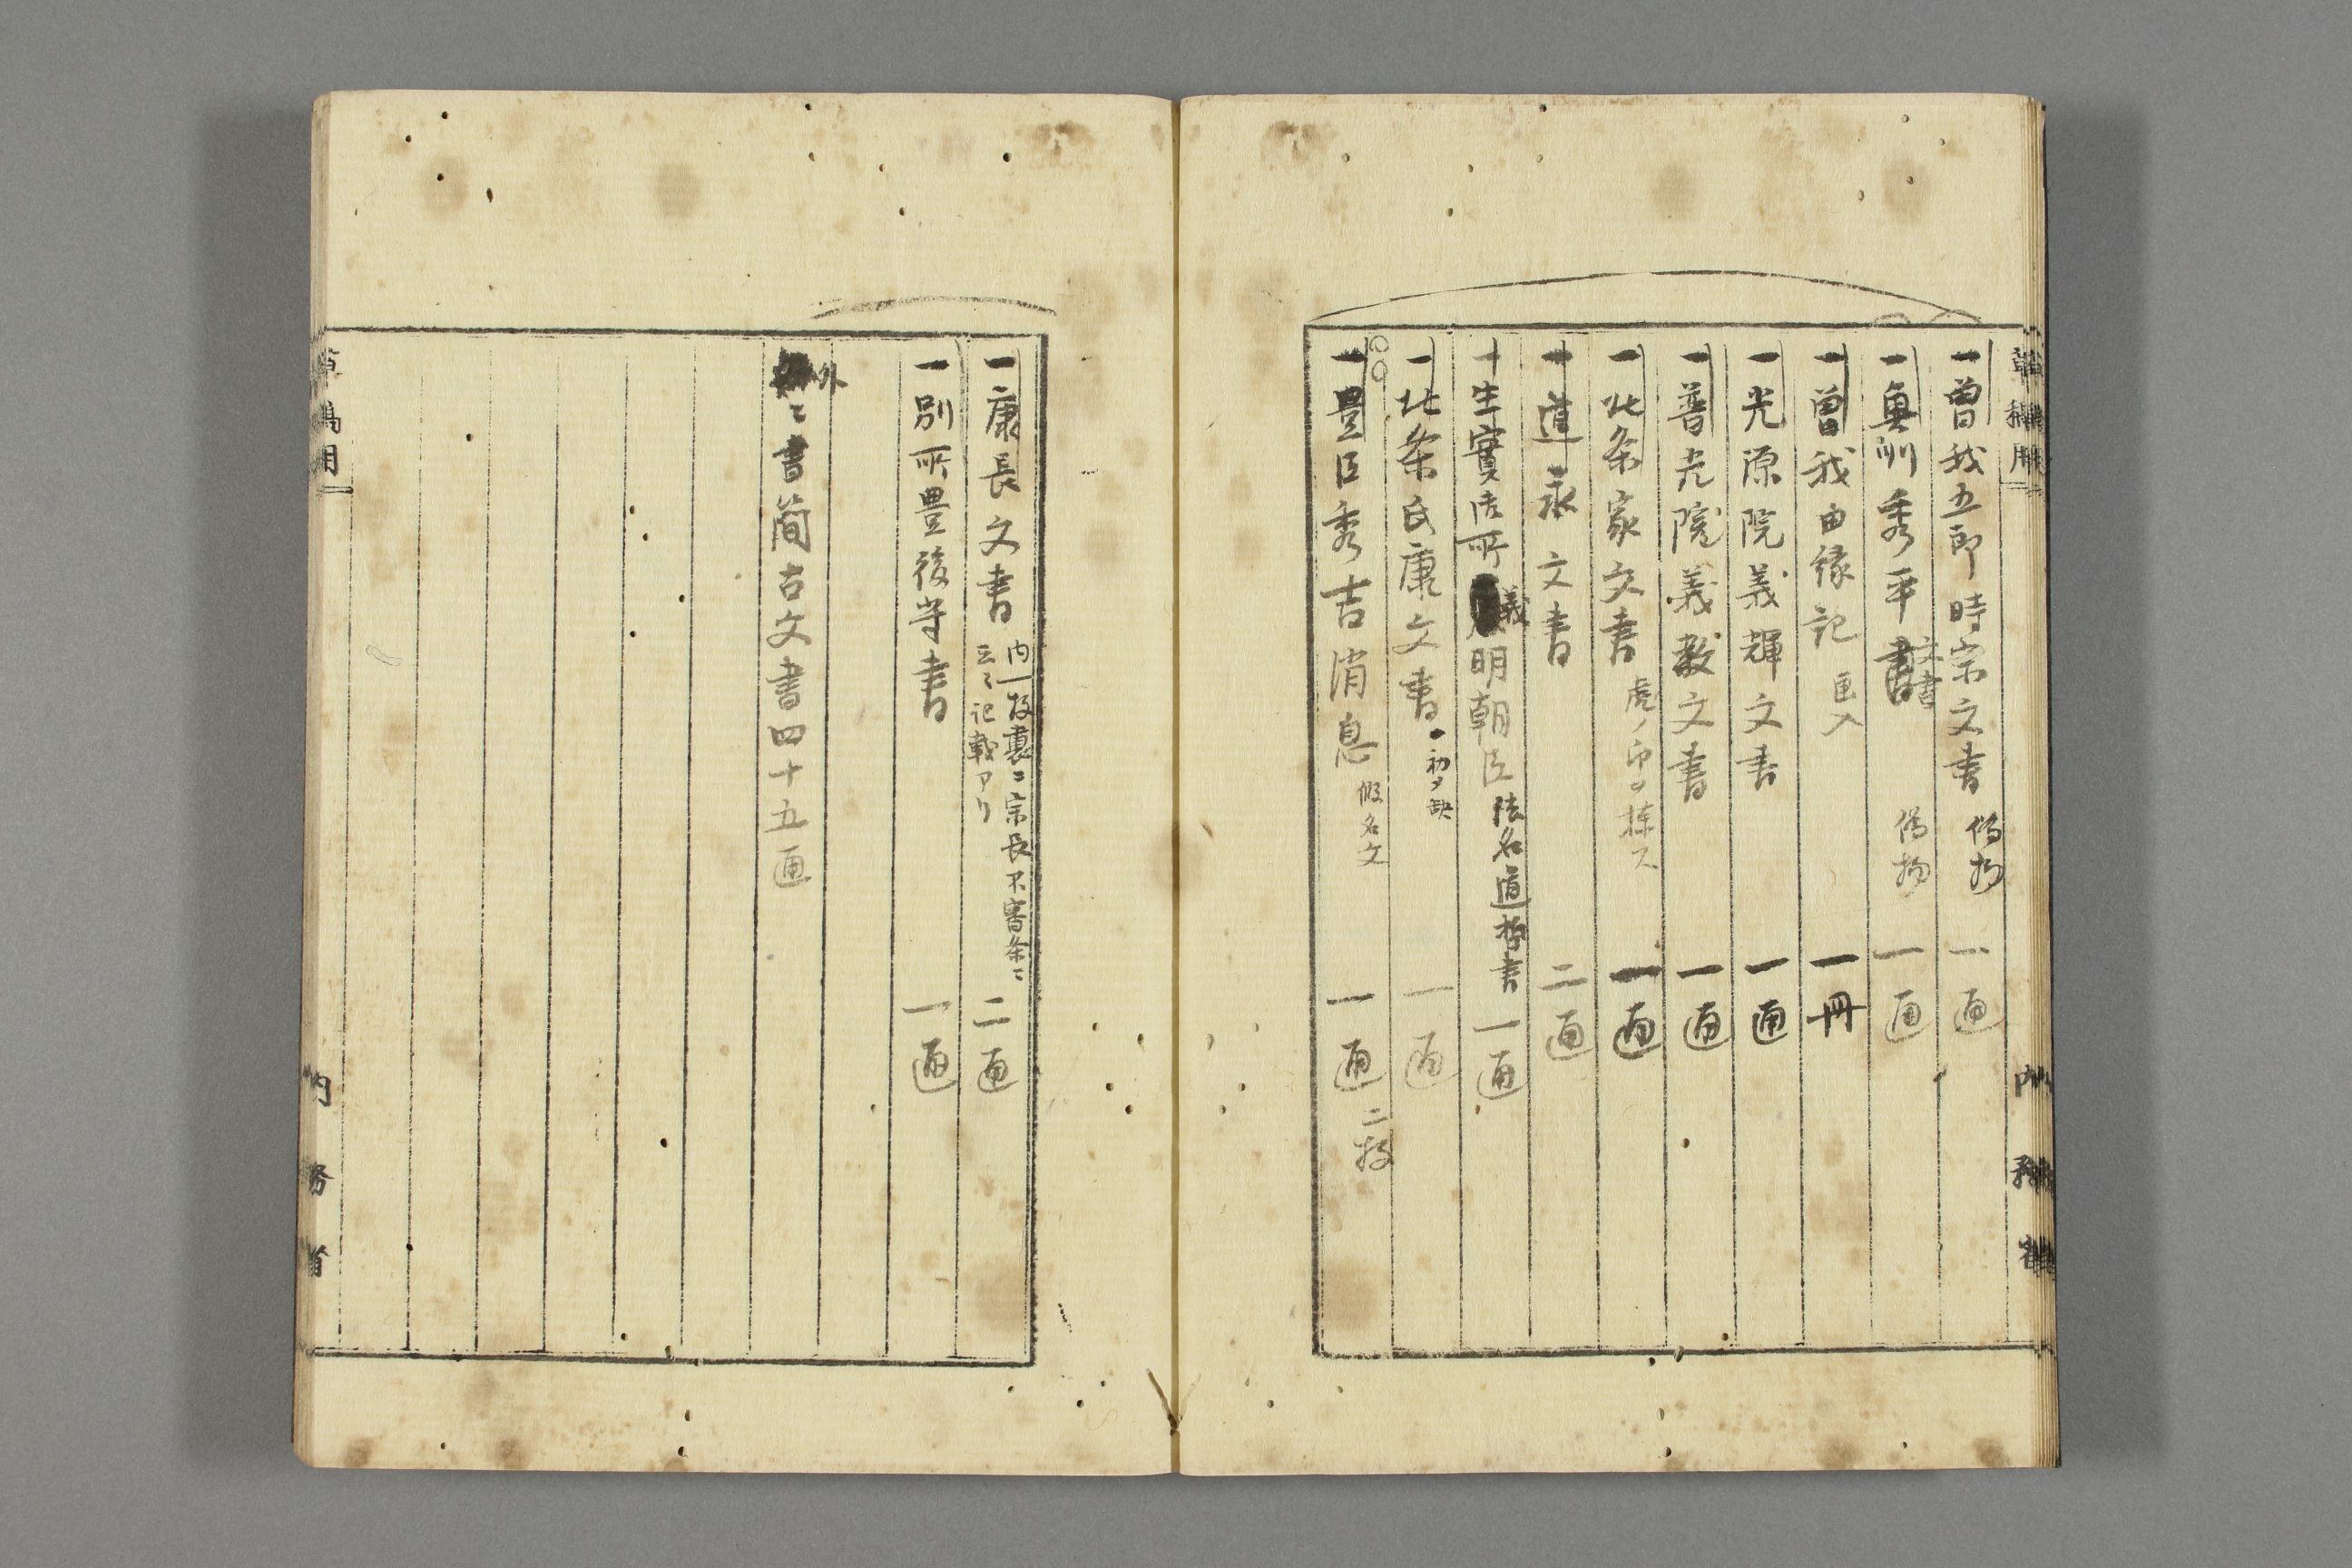 一曽我五郎時宗文書 偽物 一通
一奥州秀平文書 偽物 一通
一曽我由縁記 画入 一冊
一光源院義輝文書 一通
一普光院義教文書 一通
一北条家文書 虎ノ印ヲ捺ス 一通
一道永文書 二通
一生實御所義明朝臣 法名道哲書 一通
一北条氏康文書 初メ缺 一通
一豊臣秀吉消息 假名文 一通 二枚
一康長文書 内一枚裏ニ宗長不審条ニ 二通
云々記載アリ
一別所豊後守書 一通
外ニ書簡古文書四十五通
草稿用
内務省